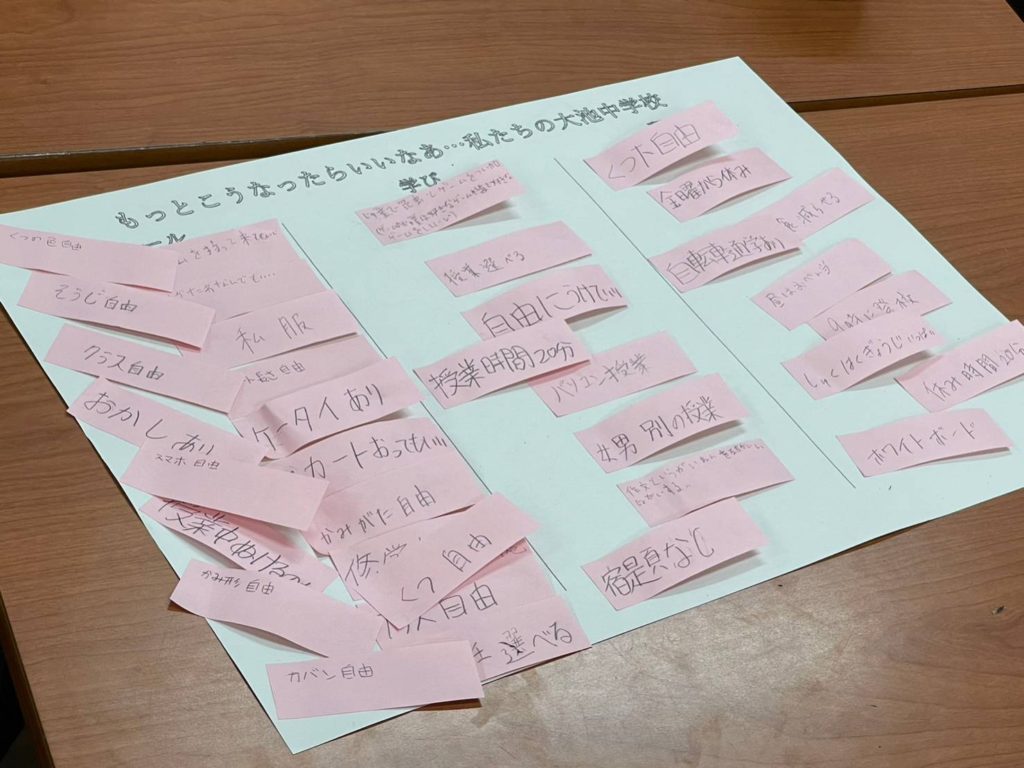 もっとこうなったらいいなあ…私たちの大池中学校
ール
くつの色自由
そうじ自由
クラス自由
おかしあり
スマホ自由
授業中ぬける
かみ形自由
カバン自由
って来てもいい
私服
自由
ケータイあり
カートおってもいい
かみがた自由
修学
くつ自由
自由
選べる
学び
授業選べる
自由にうけていい
授業時間20分
パソコン授業
女男別の授業
宿題なし
くつ下自由
金曜から休み
自転車通学あり
減らせる
しゅくはくぎょうじいっぱい
休み時間20分
ホワイトボード